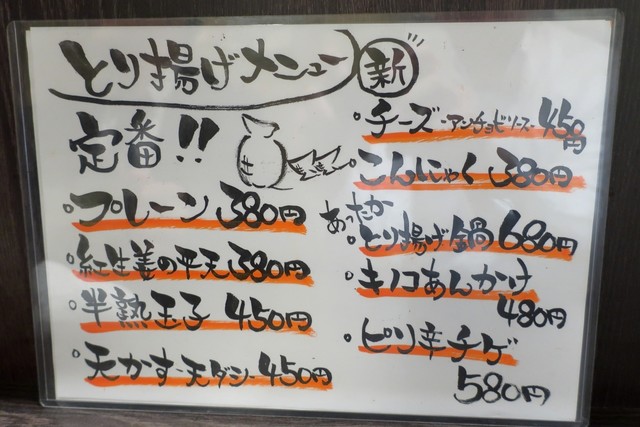 とり揚げメニュー
定番!!
プレーン 380円
紅生姜の平天 380円
半熟玉子 450円
天かす・天ダシ 450円
新
チーズ-アンチョビソース- 450円
こんにゃく 380円
あったか
とり揚げ鍋 680円
キノコあんかけ
480円
ピリ辛チゲ
580円